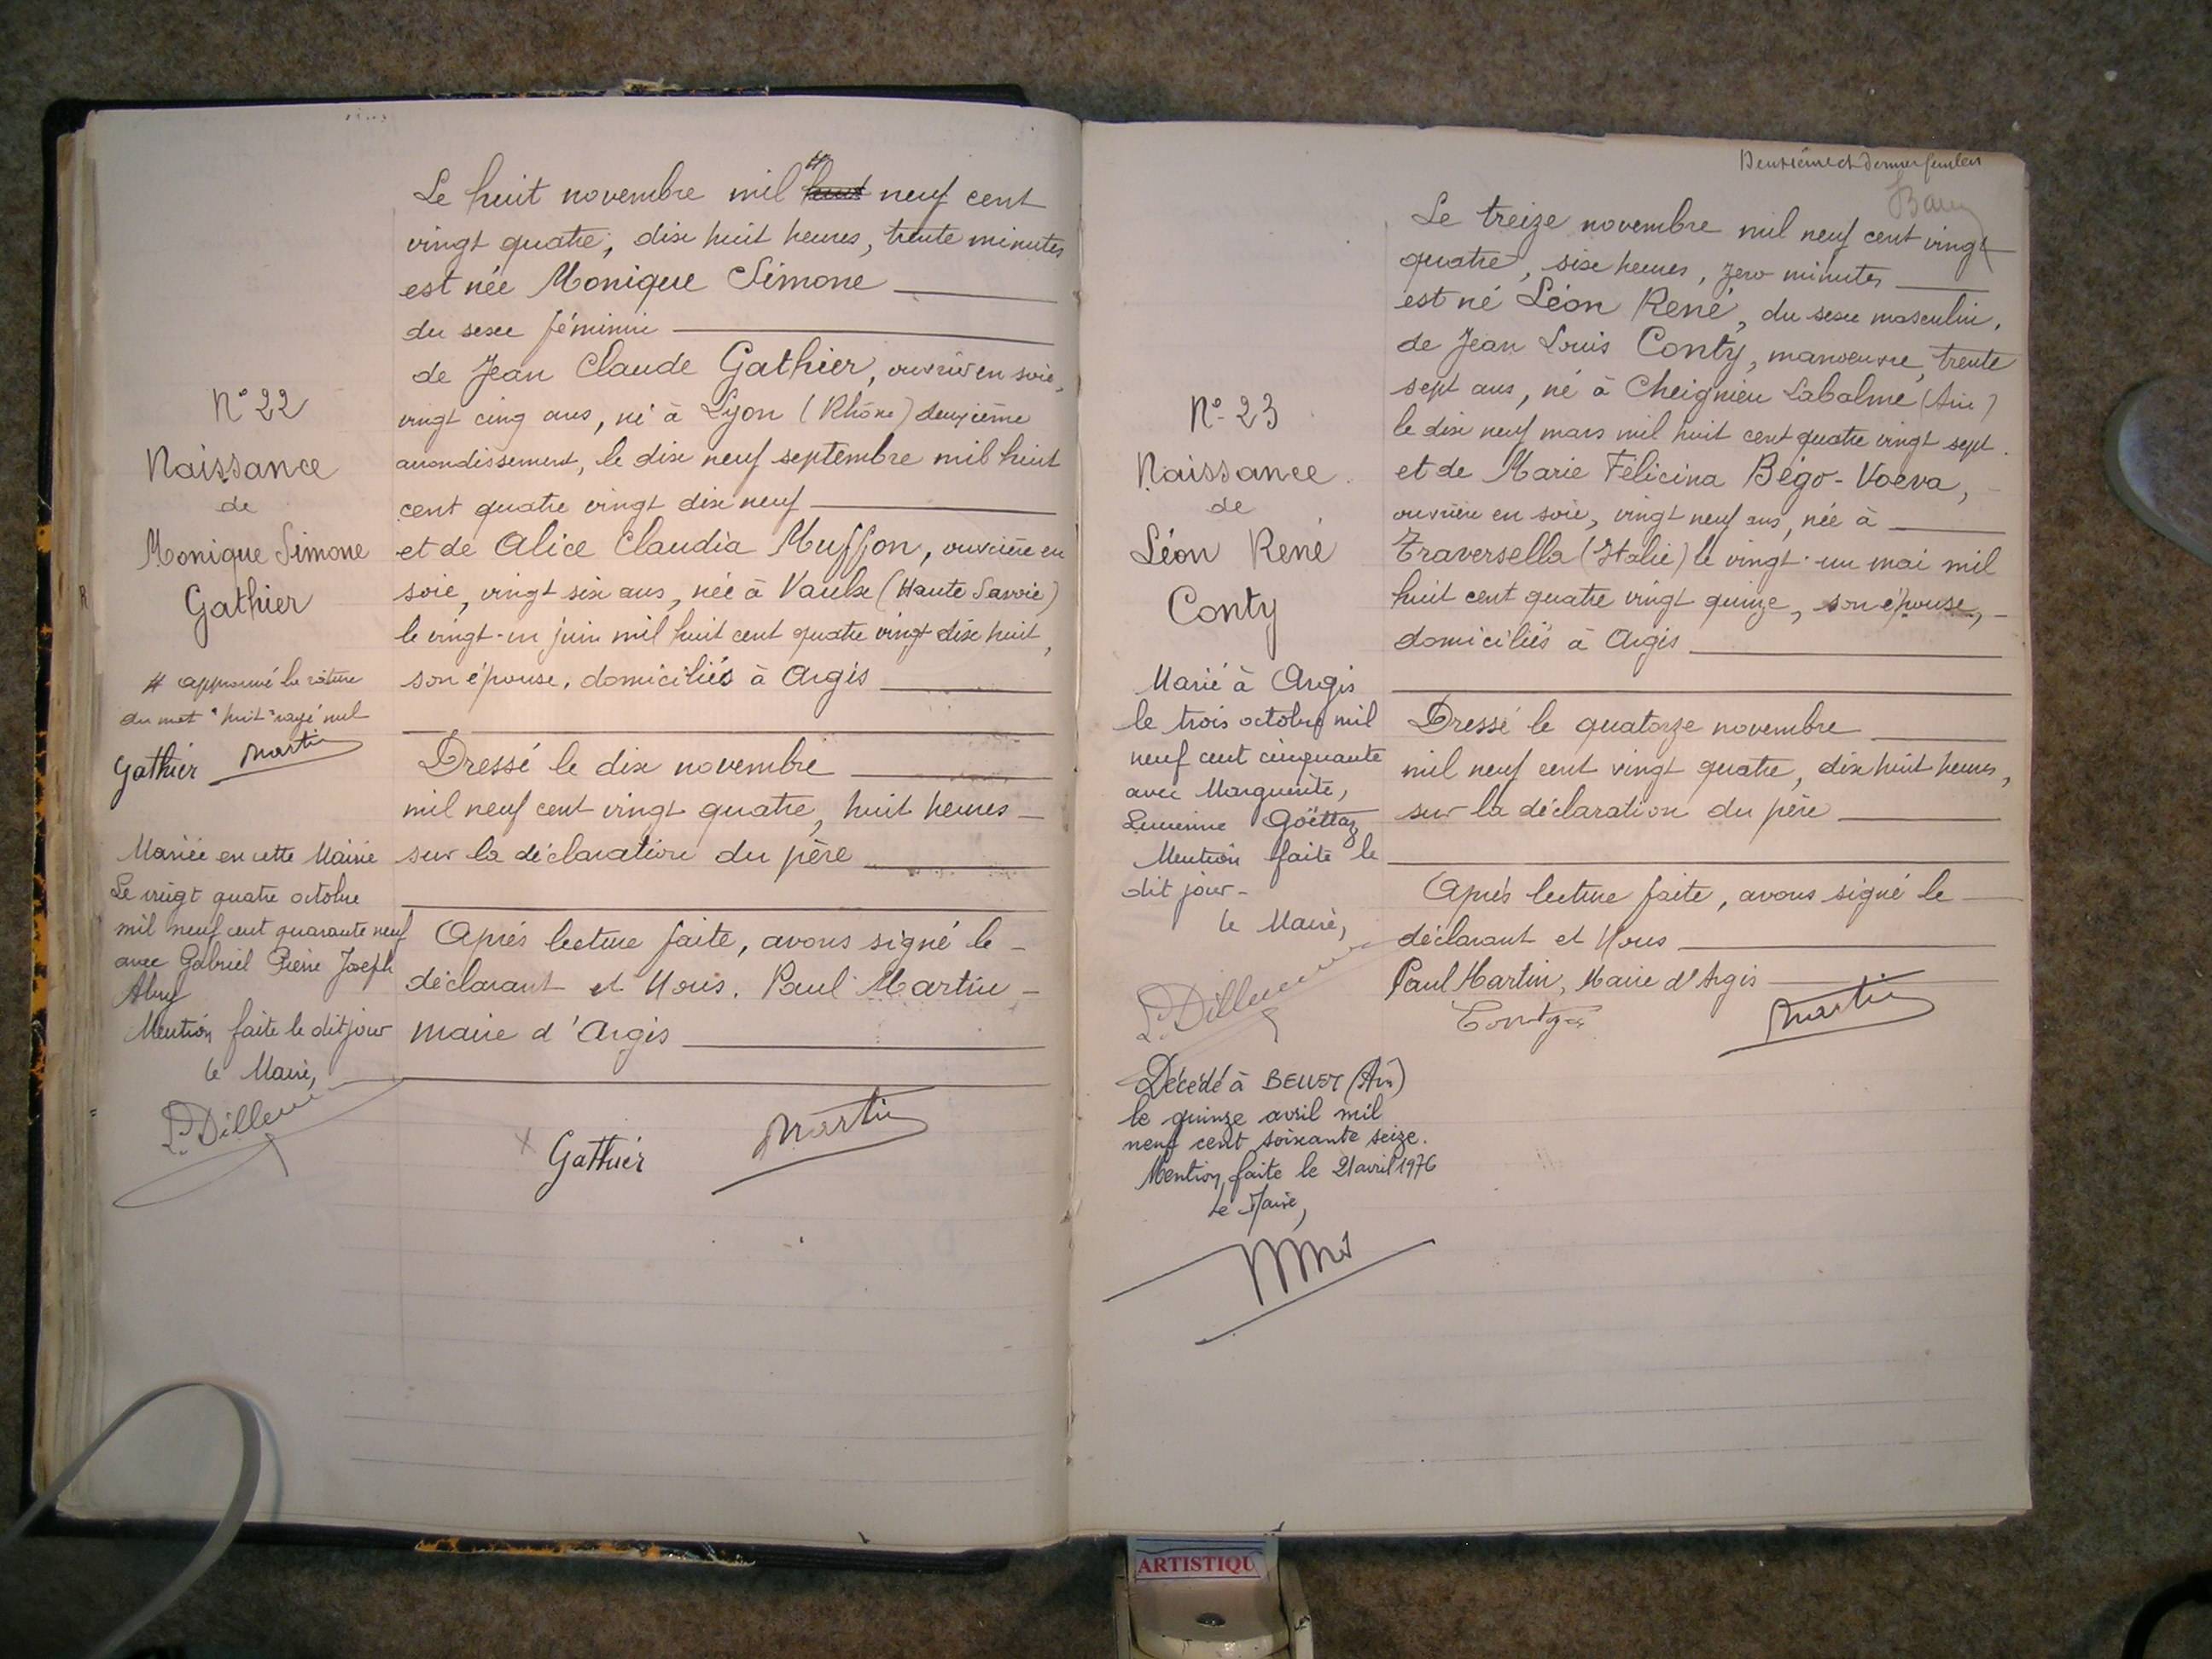 N° 22
Naissance
de
Monique Simone
Gathier
# approuvé la rature
du mot "huit" rayé nul
Gathier Martin
Mariée en cette Mairie
Le vingt quatre octobre
mil neuf cent quarante neuf
avec Gabriel Pierre Joseph
Abry
Mention faite le dit jour
le Maire,
Le huit novembre mil # huit neuf cent
vingt quatre, dix huit heures, trente minutes
est née Monique Simone
du sexe féminin
de Jean Claude Gathier, ouvrier en soie,
vingt cinq ans, né à Lyon (Rhône) deuxième
arrondissement, le dix neuf septembre mil huit
cent quatre vingt dix neuf
et de Alice Claudia Muffon, ouvrière en
soie, vingt six ans, née à Vaulx (Haute Savoie)
le vingt-un juin mil huit cent quatre vingt dix huit,
son épouse, domiciliés à Argis
Dressé le dix novembre
mil neuf cent vingt quatre, huit heures
sur la déclaration du père
Après lecture faite, avons signé le
déclarant et Nous. Paul Martin
maire d'Argis
Gathier Martin
Deuxième et dernier feuillet
N° 23
Naissance
de
Léon René
Conty
Marié à Argis
le trois octobre mil
neuf cent cinquante
avec Marguerite,
Lucienne Goëttaz
Mention faite le
dit jour -
le Maire,
Décédé à BELLEY (Ain)
le quinze avril mil
neuf cent soixante seize.
Mention faite le 21 avril 1976
Le Maire,
Le treize novembre mil neuf cent vingt
quatre, six heures, zero minutes
est né Léon René, du sexe masculin,
de Jean Louis Conty, manoeuvre, trente
sept ans, né à Cheignieu Labalme (Ain)
le dix neuf mars mil huit cent quatre vingt sept.
et de Marie Félicina Bégo-Voeva,
ouvrière en soie, vingt neuf ans, née à
Traversella (Italie) le vingt-un mai mil
huit cent quatre vingt quinze, son épouse,
domiciliés à Argis
Dressé le quatorze novembre
mil neuf cent vingt quatre, dix huit heures,
sur la déclaration du père
Après lecture faite, avons signé le
déclarant et Nous
Paul Martin, Maire d'Argis
Conty Martin
ARTISTIQU